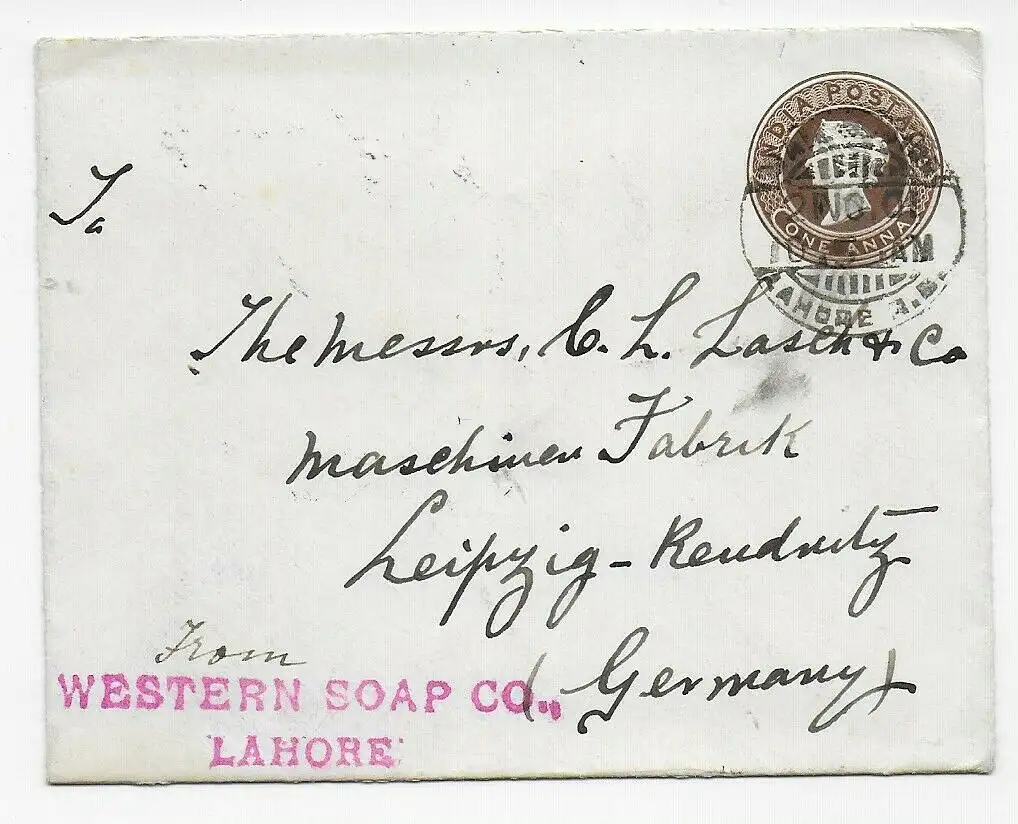 INDIA POSTAGE
ONE ANNA
AM
LAHORE R.
To
The Messrs, C. L. Lasch & Co
Maschinen Fabrik
Leipzig - Reudnitz
(Germany)
From
WESTERN SOAP CO.,
LAHORE